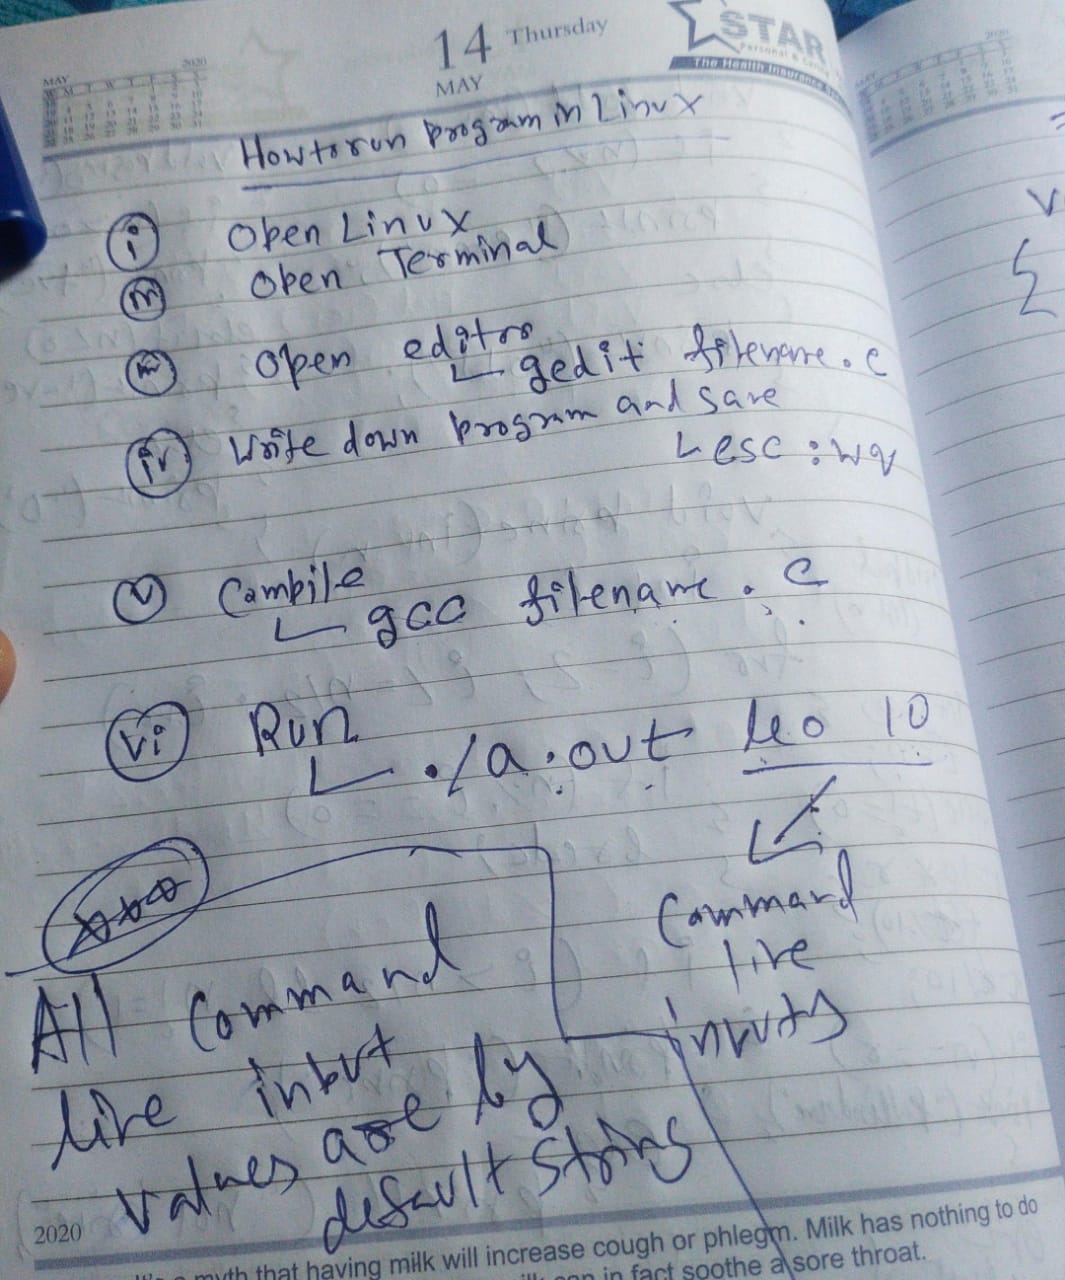 MAY 2020
14 Thursday
MAY
STAR
Personal &
The Health Insurance
How to run program in Linux
i Open Linux
Open Terminal
Open editor
gedit filename.c
iv Write down program and save
esc :wq
v Compile
gcc filename.c
vi Run
./a.out 40 10
Command
line
inputs
All Command
line input
values are by
default string
2020
myth that having milk will increase cough or phlegm. Milk has nothing to do
in fact soothe a sore throat.